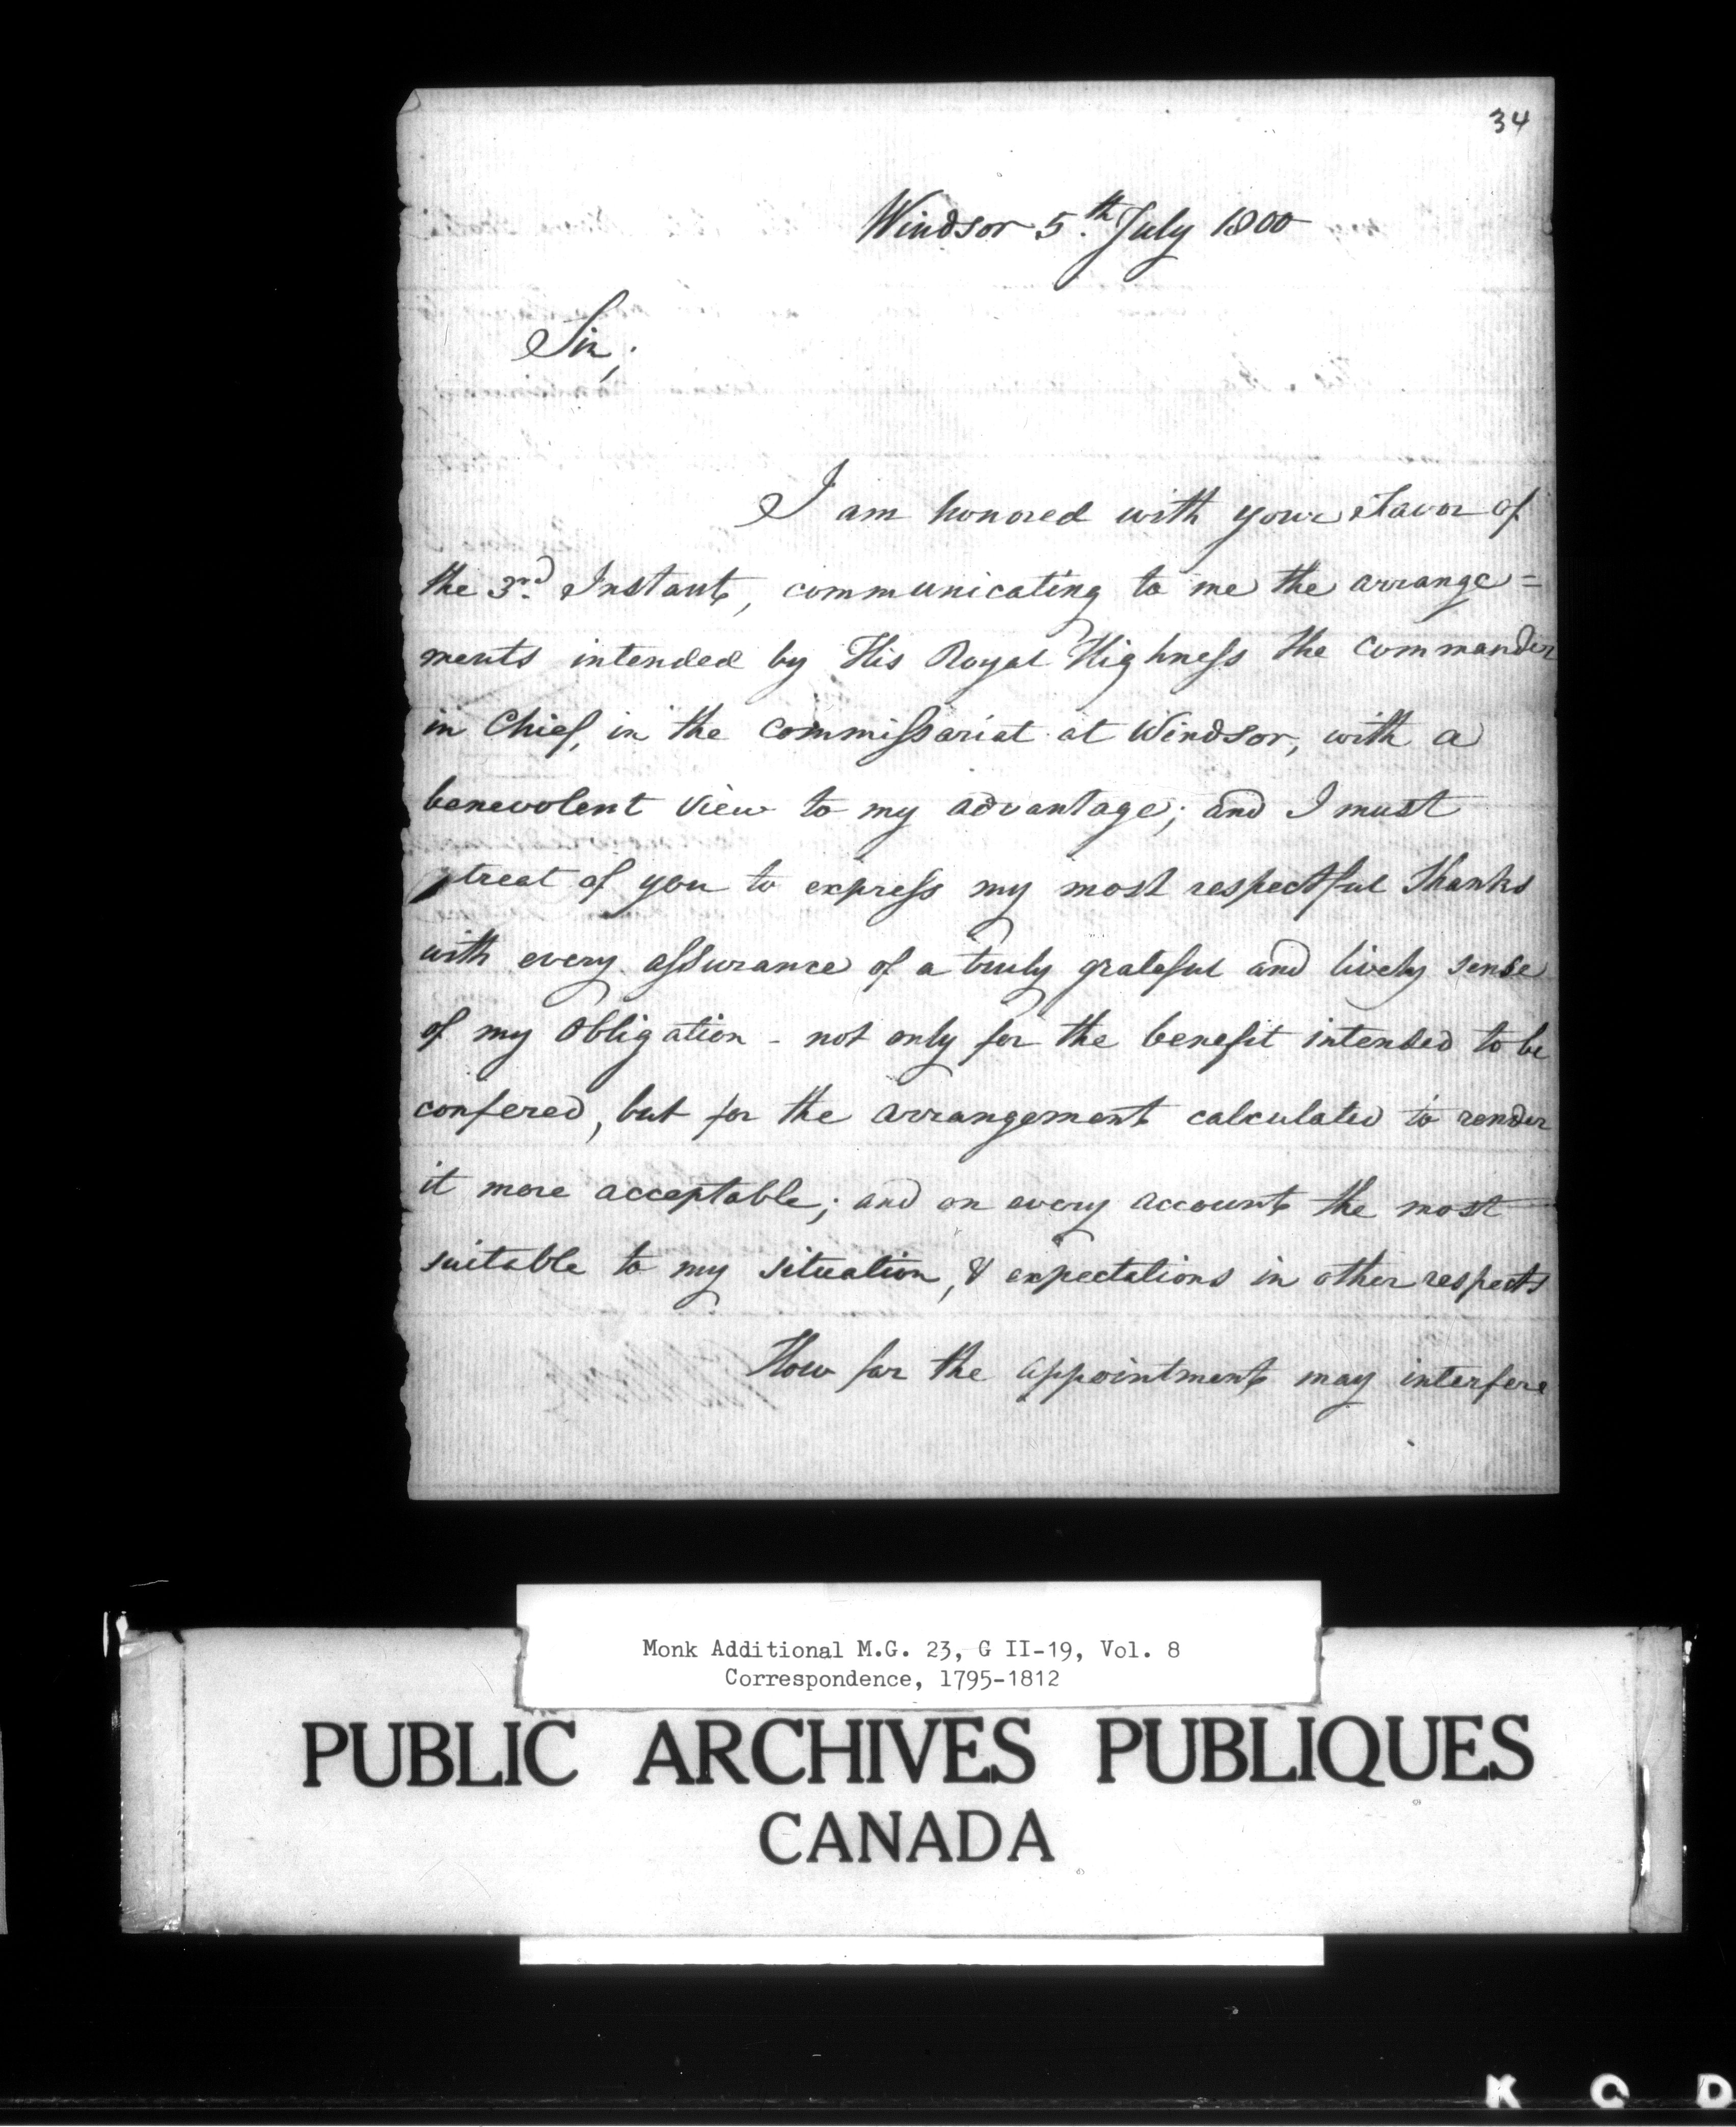 34
Windsor 5.th July 1800
Sir;
I am honored with your Favor of
the 3.rd Instant, communicating to me the arrange=
ments intended by His Royal Highness the Commander
in Chief, in the Commissariat at Windsor, with a
benevolent view to my advantage; and I must
treat of you to express my most respectful thanks
with every assurance of a truly grateful and lively sense
of my Obligation - not only for the benefit intended to be
confered, but for the arrangement calculated to render
it more acceptable; and on every account the most
suitable to my situation, & expectations in other respects
How far the appointment may interfere
Monk Additional M.G. 23, G II-19, Vol. 8
Correspondence, 1795-1812
PUBLIC ARCHIVES PUBLIQUES
CANADA
K C D